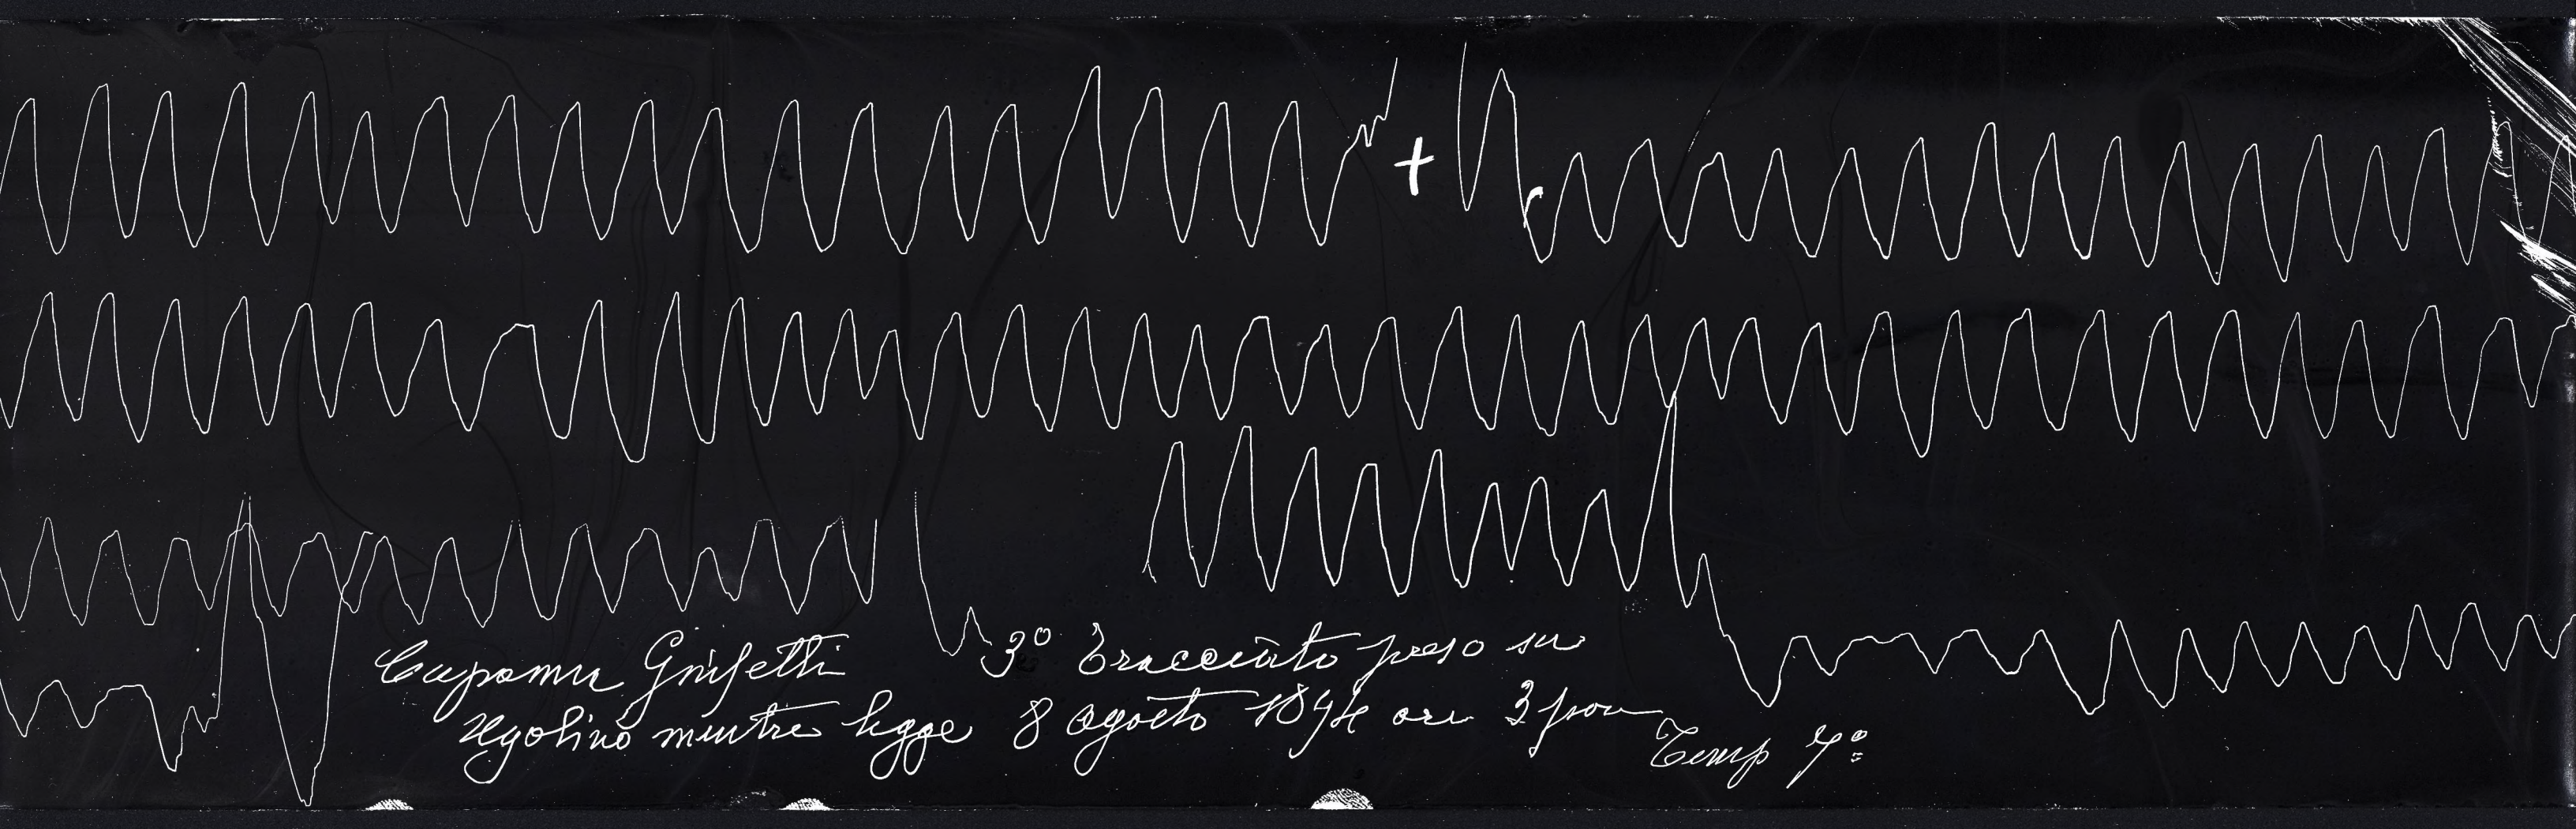 +
Capanna Gnifetti 3° Tracciato preso su
Ugolino mentre legge 8 agosto 1894 ore 3 pom
Temp 7°